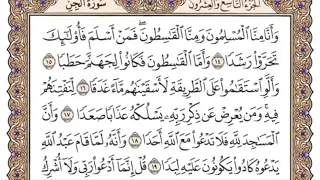 الجزء التاسع والعشرون سورة الجن
وَأَنَّا مِنَّا ٱلْمُسْلِمُونَ وَمِنَّا ٱلْقَٰسِطُونَ ۖ فَمَنْ أَسْلَمَ فَأُو۟لَٰٓئِكَ
تَحَرَّوْا۟ رَشَدًا ١٤ وَأَمَّا ٱلْقَٰسِطُونَ فَكَانُوا۟ لِجَهَنَّمَ حَطَبًا ١٥
وَأَلَّوِ ٱسْتَقَٰمُوا۟ عَلَى ٱلطَّرِيقَةِ لَأَسْقَيْنَٰهُم مَّآءً غَدَقًا ١٦ لِّنَفْتِنَهُمْ
فِيهِ ۚ وَمَن يُعْرِضْ عَن ذِكْرِ رَبِّهِۦ يَسْلُكْهُ عَذَابًا صَعَدًا ١٧ وَأَنَّ
ٱلْمَسَٰجِدَ لِلَّهِ فَلَا تَدْعُوا۟ مَعَ ٱللَّهِ أَحَدًا ١٨ وَأَنَّهُۥ لَمَّا قَامَ عَبْدُ ٱللَّهِ
يَدْعُوهُ كَادُوا۟ يَكُونُونَ عَلَيْهِ لِبَدًا ١٩ قُلْ إِنَّمَآ أَدْعُوا۟ رَبِّى وَلَآ أُشْرِكُ